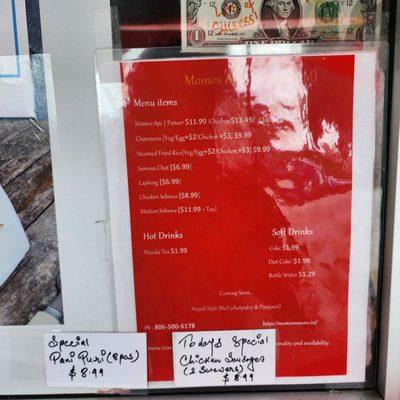 SUCCESS
Momos
Menu items
Momos 8pc [ Paneer $11.99 /Chicken $13.49/
Chowmein [Veg/Egg+$2/Chicken +$3] $9.99
Steamed Fried Rice[Veg/Egg+$2/Chicken +$3] $9.99
Samosa Chat [$6.99]
Laphing [$6.99]
Chicken Sekuwa [$8.99]
Mutton Sekuwa [$11.99 + Tax]
Hot Drinks
Masala Tea $1.99
Soft Drinks
Coke $1.99
Diet Coke $1.99
Bottle Water $1.29
Coming Soon..
Nepali Style Bhel (chatpatey & Panipuri)
Ph : 806-500-6178
Special
Pani Puri (8pcs)
$ 8.99
Today's Special
Chicken Sausages
(2 Skewers)
$ 8.99